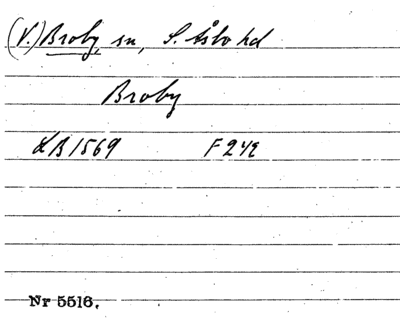 (V.) Broby sn, S. Åsbo hd
Broby
LB 1569 F 242
Nr 5516.